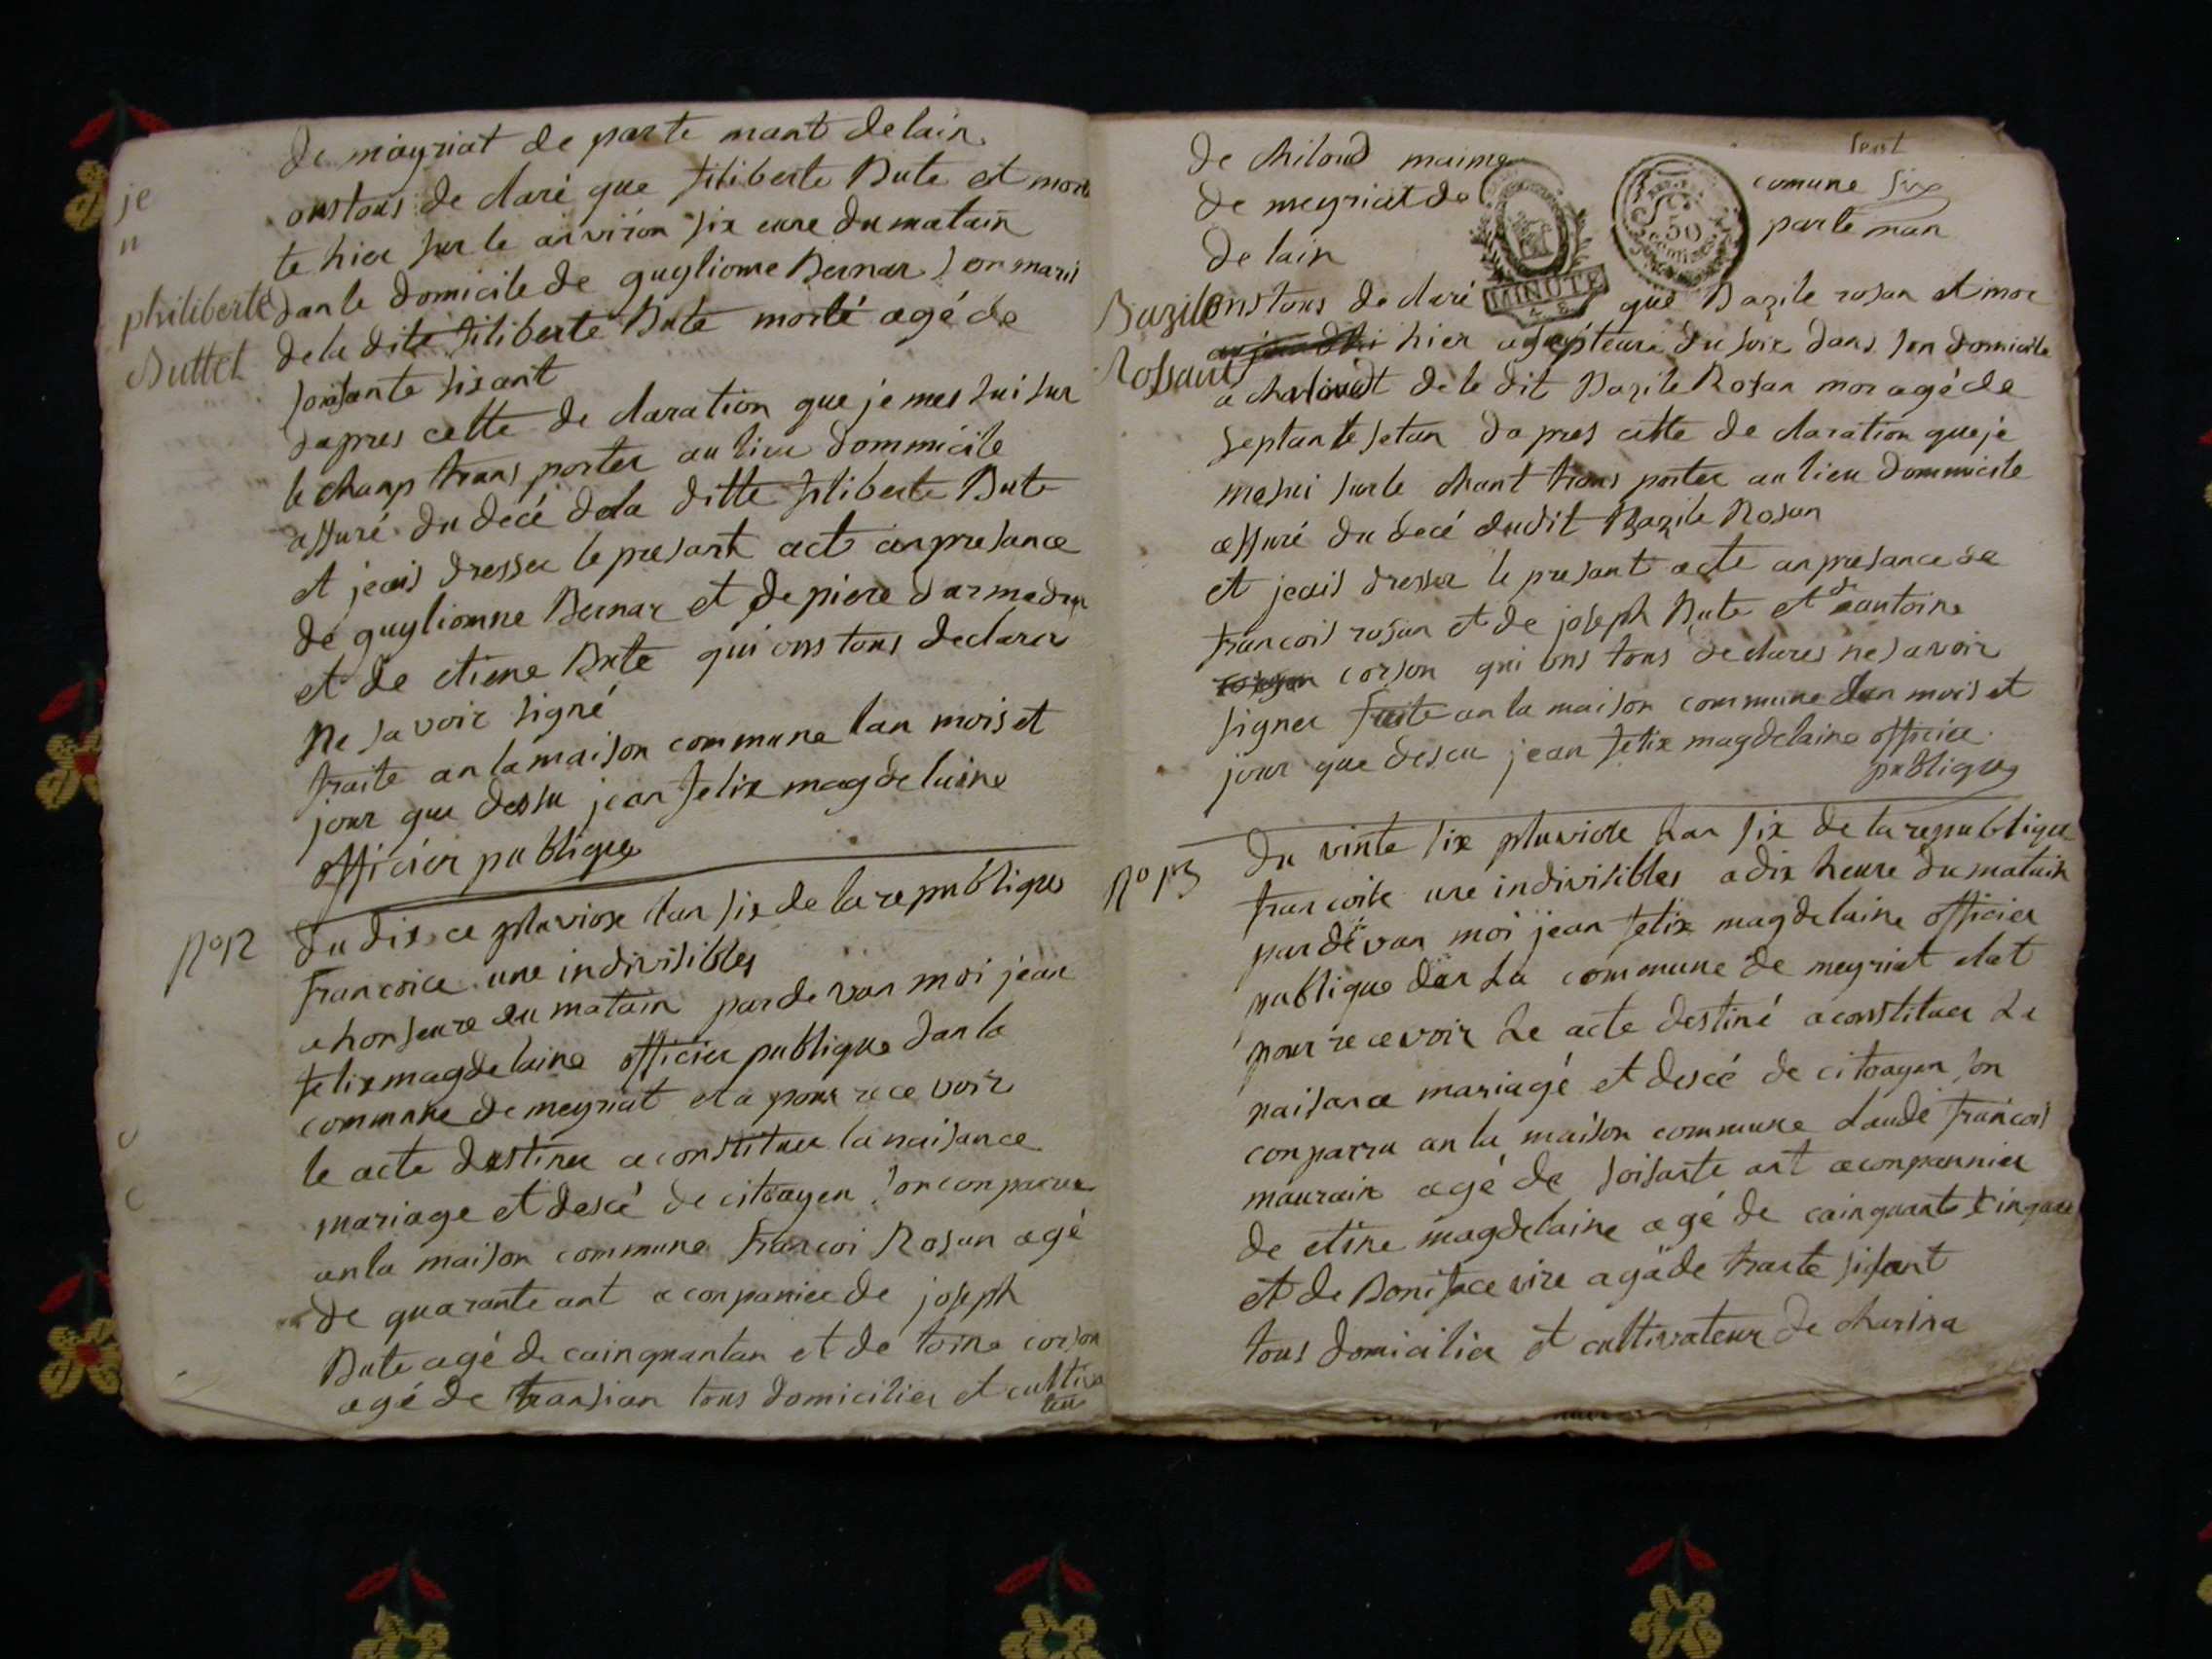 de mayriat de parte mant de lain
je
onstous de claré que filiberte Bute et mor
te hier sur le anviron six eure du matain
philiberte
dan le domicile de gugliome Bernar son maris
Buttet
de la dite filiberte Bute morté agé de
soisante sisant
dapres cette de claration que je mes sui sur
le champ trans porter au lieu dommicile
assuré du decé dela ditte filiberte Bute
et jeais dresser le presant act an presance
de guglionne Bernar et de piere darmedon
et de etiene Bute qui ons tous declarer
ne savoir signé
fraite an la maison commune lan mois et
jour que dessu jean felix magdelaine
officier publique
no 12
du dis ce pluviose lan six de la republique
francoice une indivisibles
a honseure du matain parde van moi jean
felix magdelaine officier publique dan la
commune de meyriat eta pour rece voir
le acte destiner a constituer la naisance
mariage et descé de citoayen son conparue
an la maison commune francoi Rosan agé
de quarante ant a conpanier de joseph
Bute agé de cainquantan et de toine corson
agé de transian tous domicilier et cultiva
teur
sept
de chiloud maime comune six
de meyriat de parte man
de lain
50
MINUTE
Bazile
onstous de claré que Bazile rosan et mor
hier a septeure du soir dans son domicile
Rossand
a chaloudt de le dit Bazile Rosan mor agé de
septante setan da pres cette de claration que je
mesui sur le chant trans porter au lieu dommicile
assuré du decé dudit Bazile Rosan
et jeais dresser le presant acte an presance de
francois rosan et de joseph Bute et de antoine
corson qui ons tous declares ne savoir
signer faite an la maison commune lan mois et
jour que desu jean felix magdelaine officier
publique
no 13
du vinte six pluviose lan six de la republique
francoise une indivisibles a dix heure du matain
par devan moi jean felix magdelaine officier
publique dan La commune de meyriat elat
pour recevoir Le acte destiné a constituer La
naisance mariagé et descé de citoayen son
conparru an la maison commune claude francois
maurain agé de soisante ant aconpannier
de etine magdelaine agé de cainquante cinquan
et de Boniface vire agà de trante sisant
tous domicilier et cultivateur de charina